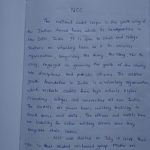 NCC
The national cadet corps is the youth wing of
the Indian Armed forces with its headquarters in
New Delhi, India. It is open to school and college
students on voluntary basis as a Tri-services
organisation, comprising the Army, the Navy and Air
wing, engaged in grooming the youth of the country
into disciplined and patriotic citizens. The
in India is a voluntary organisation
which recruits cadets from high schools, higher
secondary, colleges and universities all over India.
The Cadets are given basic military training in
small arms and drill. The officers and cadets have
no liability for active military service once they
complete their course.
NCC was started in